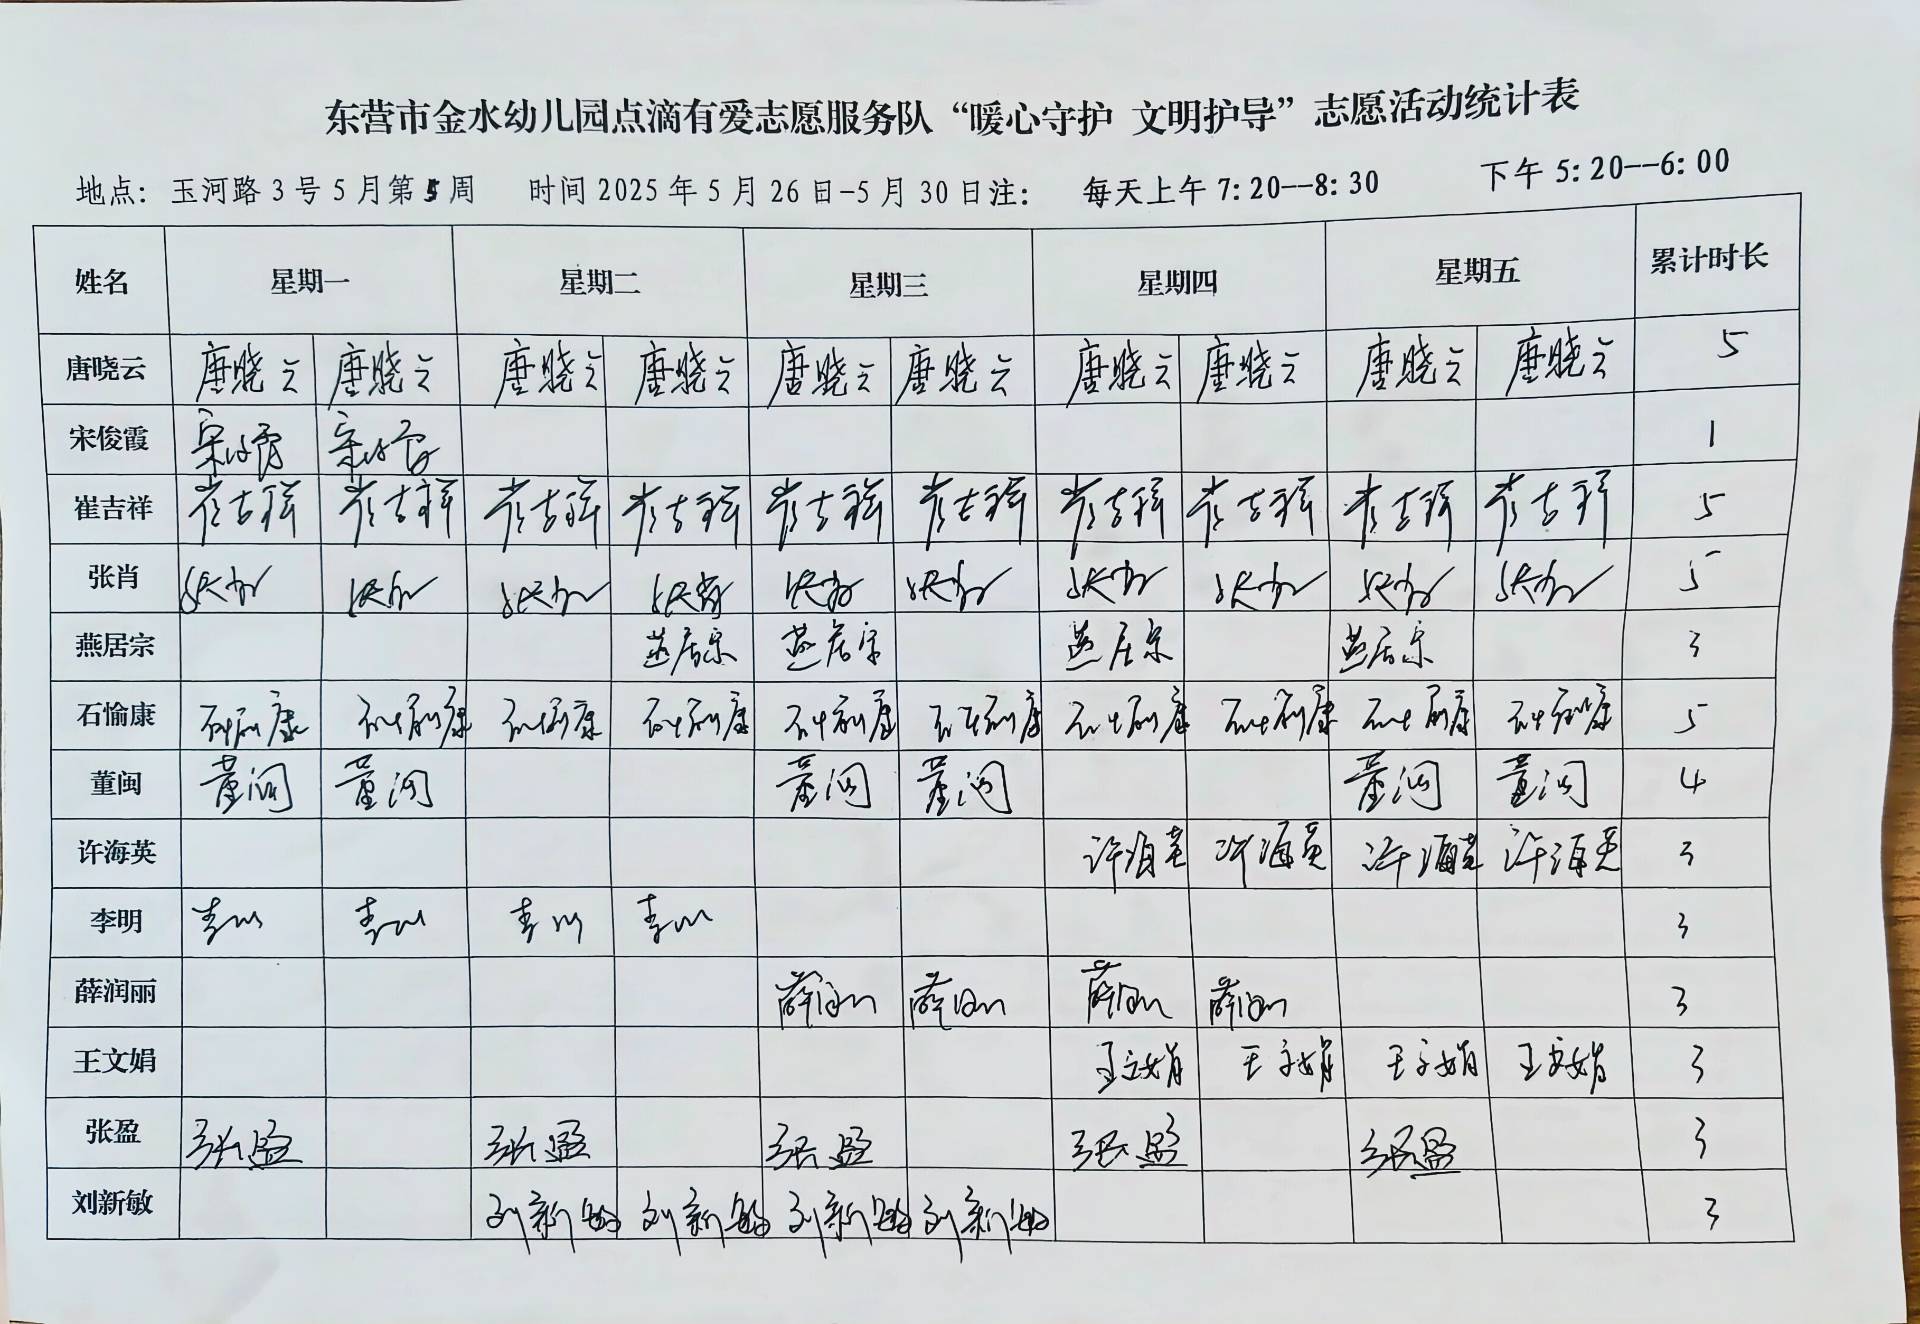 东营市金水幼儿园点滴有爱志愿服务队“暖心守护 文明护导”志愿活动统计表
地点：玉河路3号5月第5周 时间2025年5月26日-5月30日注： 每天上午7:20--8:30 下午5:20--6:00
姓名 星期一 星期二 星期三 星期四 星期五 累计时长
唐晓云 唐晓云 唐晓云 唐晓云 唐晓云 唐晓云 唐晓云 唐晓云 唐晓云 唐晓云 唐晓云 5
宋俊霞 宋俊霞 宋俊霞 1
崔吉祥 崔吉祥 崔吉祥 崔吉祥 崔吉祥 崔吉祥 崔吉祥 崔吉祥 崔吉祥 崔吉祥 崔吉祥 5
张肖 张肖 张肖 张肖 张肖 张肖 张肖 张肖 张肖 张肖 张肖 5
燕居宗 燕居宗 燕居宗 燕居宗 燕居宗 3
石愉康 石愉康 石愉康 石愉康 石愉康 石愉康 石愉康 石愉康 石愉康 石愉康 石愉康 5
董闽 董闽 董闽 董闽 董闽 董闽 董闽 4
许海英 许海英 许海英 许海英 许海英 3
李明 李明 李明 李明 李明 3
薛润丽 薛润丽 薛润丽 薛润丽 薛润丽 3
王文娟 王文娟 王文娟 王文娟 王文娟 3
张盈 张盈 张盈 张盈 张盈 张盈 3
刘新敏 刘新敏 刘新敏 刘新敏 刘新敏 3